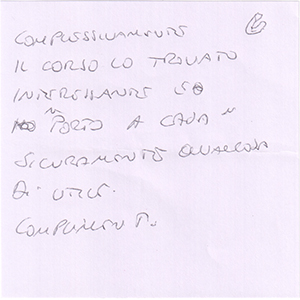 COMPLESSIVAMENTE
IL CORSO LO TROVATO
INTERESSANTE E
"PORTO A CASA"
SICURAMENTE QUALCOSA
DI UTILE.
COMPLIMENTI.